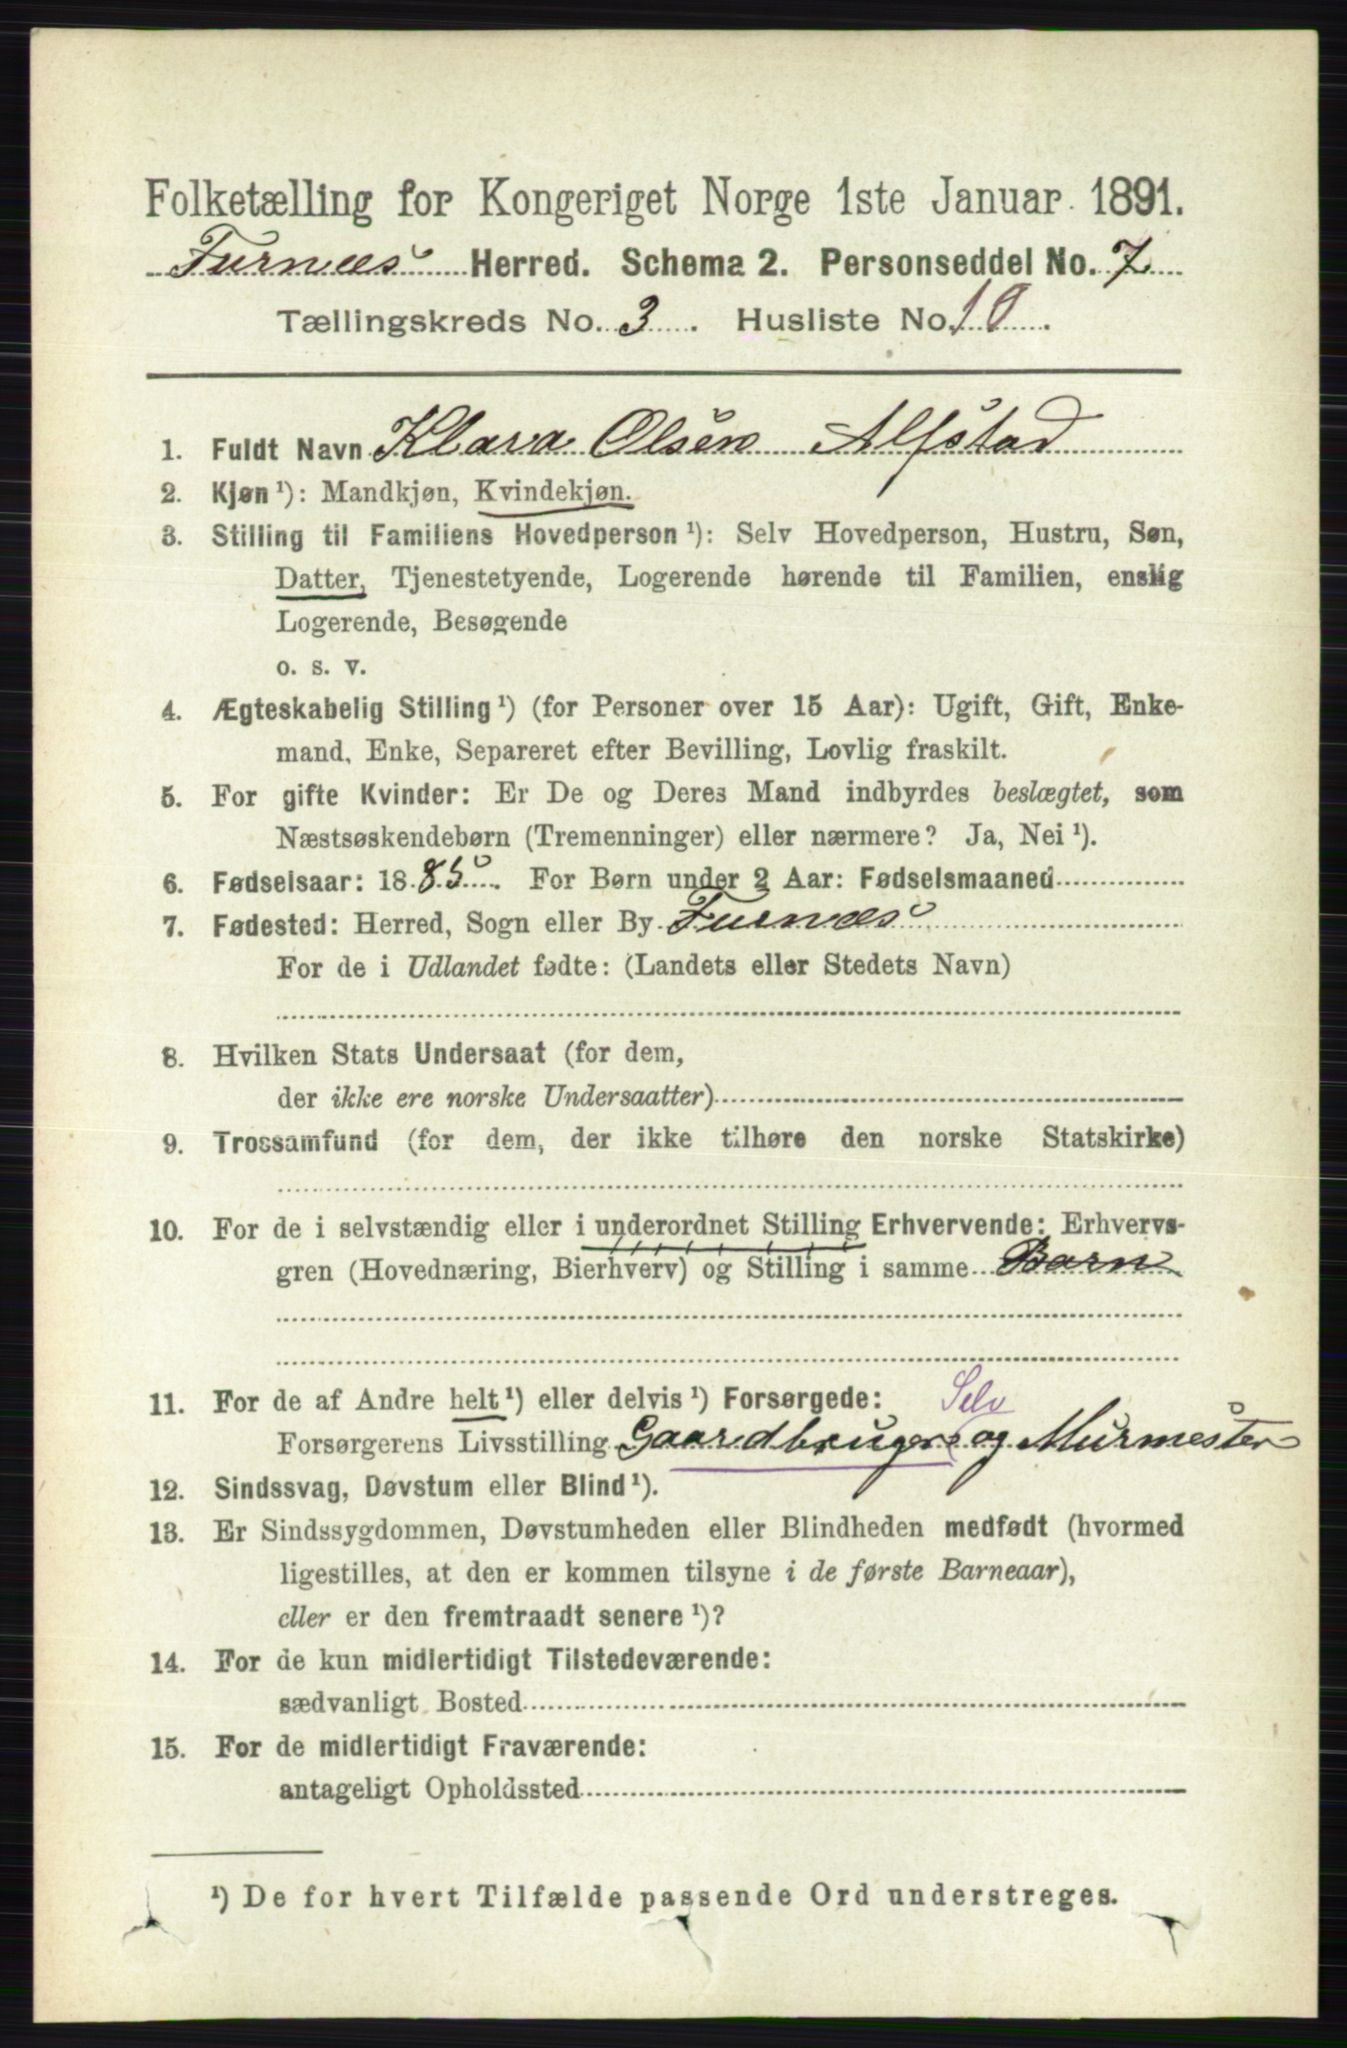 Folketælling for Kongeriget Norge 1ste Januar 1891.
Furnæs Herred. Schema 2. Personseddel No. 7
Tællingskreds No. 3. Husliste No. 10.
1. Fuldt Navn Klara Olsen Alfstad
2. Kjøn ¹): Mandkjøn, Kvindekjøn.
3. Stilling til Familiens Hovedperson ¹): Selv Hovedperson, Hustru, Søn,
Datter, Tjenestetyende, Logerende hørende til Familien, enslig
Logerende, Besøgende
o. s. v.
4. Ægteskabelig Stilling ¹) (for Personer over 15 Aar): Ugift, Gift, Enke-
mand, Enke, Separeret efter Bevilling, Lovlig fraskilt.
5. For gifte Kvinder: Er De og Deres Mand indbyrdes beslægtet, som
Næstsøskendebørn (Tremenninger) eller nærmere? Ja, Nei ¹).
6. Fødselsaar: 1885. For Børn under 2 Aar: Fødselsmaaned
7. Fødested: Herred, Sogn eller By Furnæs
For de i Udlandet fødte: (Landets eller Stedets Navn)
8. Hvilken Stats Undersaat (for dem,
der ikke ere norske Undersaatter)
9. Trossamfund (for dem, der ikke tilhøre den norske Statskirke)
10. For de i selvstændig eller i underordnet Stilling Erhvervende: Erhvervs-
gren (Hovednæring, Bierhverv) og Stilling i samme Barn
11. For de af Andre helt ¹) eller delvis ¹) Forsørgede: Selv
Forsørgerens Livsstilling Gaardbruger og Murmester
12. Sindssvag, Døvstum eller Blind ¹).
13. Er Sindssygdommen, Døvstumheden eller Blindheden medfødt (hvormed
ligestilles, at den er kommen tilsyne i de første Barneaar),
eller er den fremtraadt senere ¹)?
14. For de kun midlertidigt Tilstedeværende:
sædvanligt Bosted
15. For de midlertidigt Fraværende:
antageligt Opholdssted
¹) De for hvert Tilfælde passende Ord understreges.